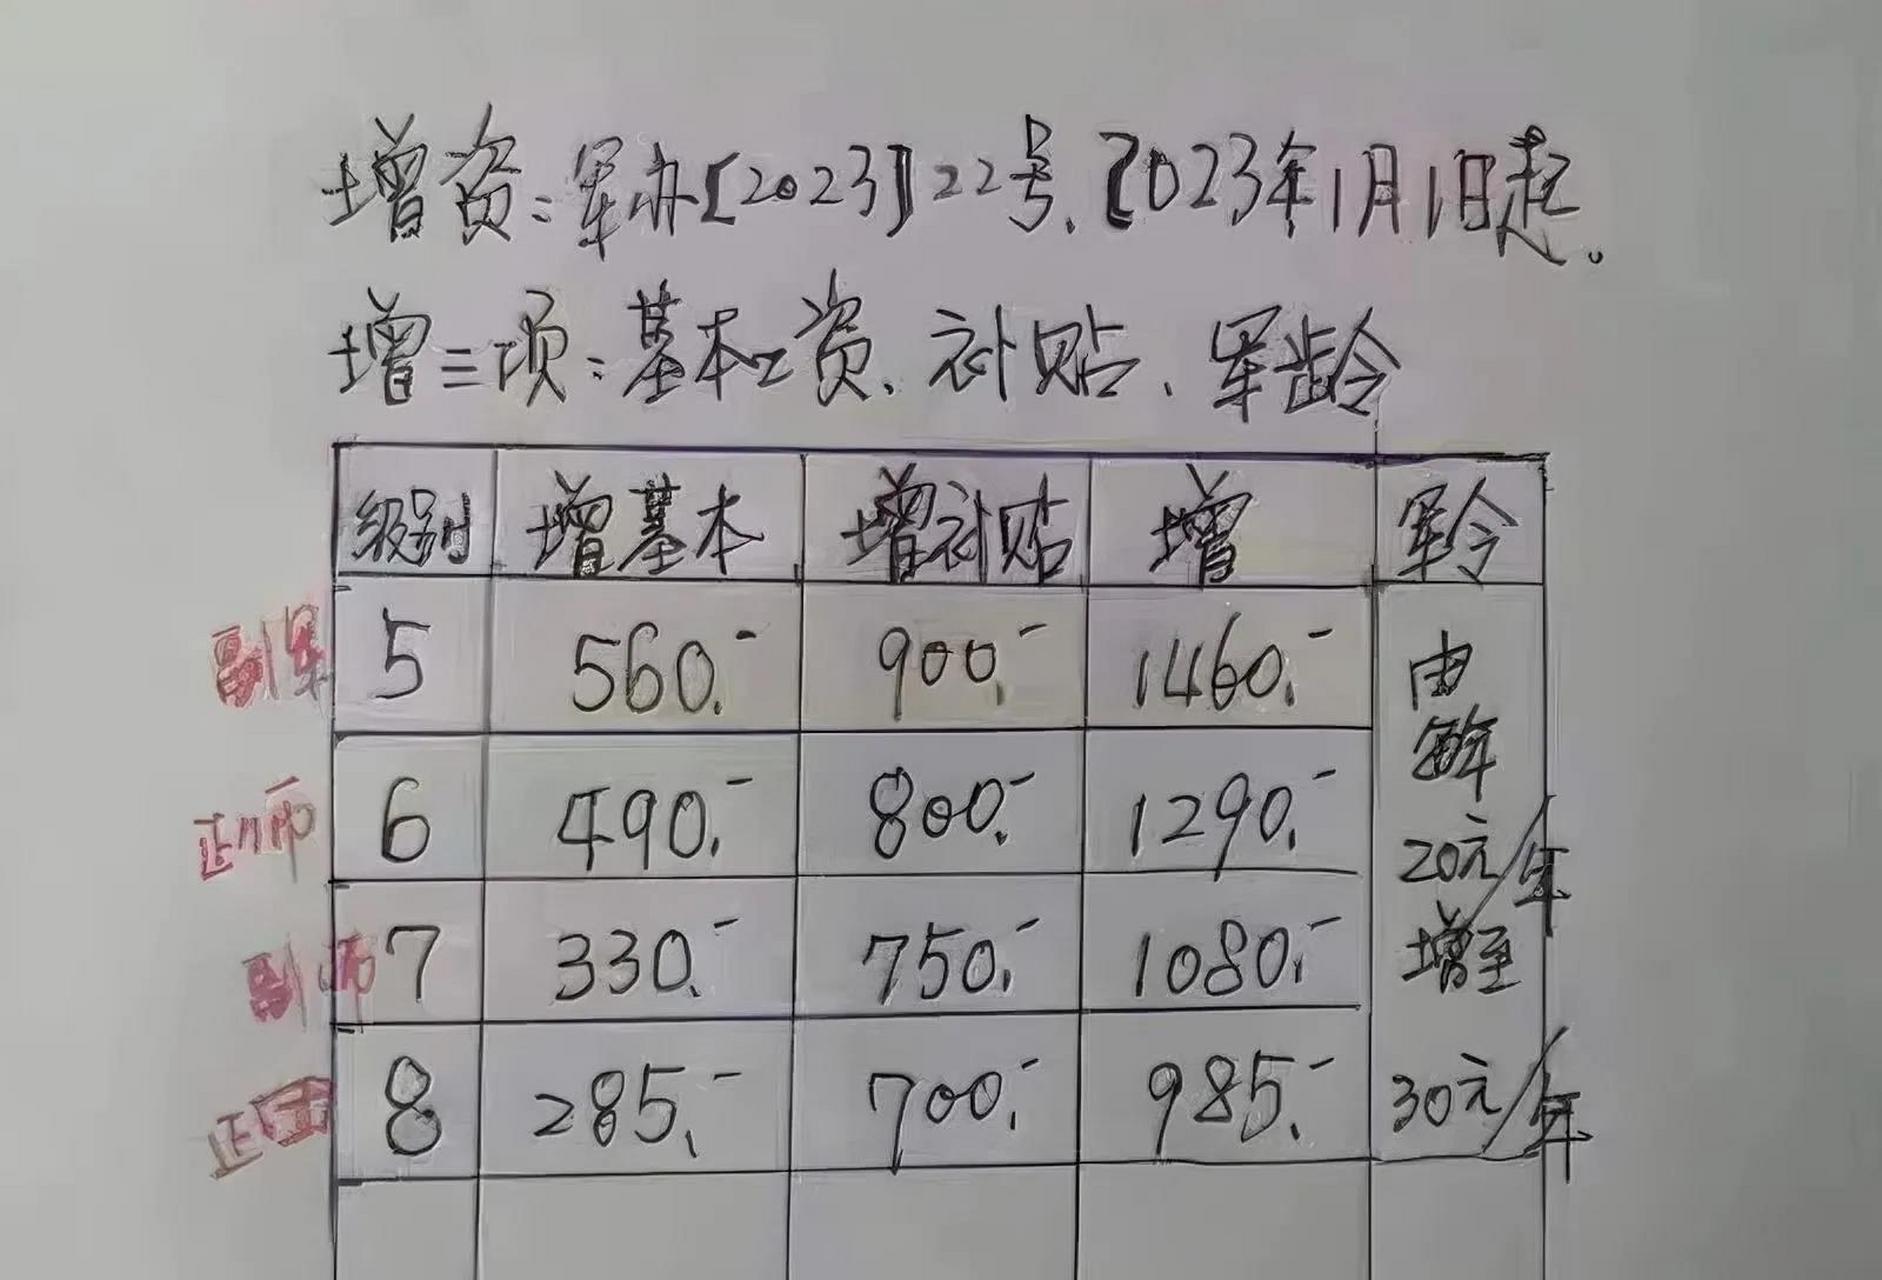 增资:军办〔2023〕22号、2023年1月1日起。
增三项:基本工资、补贴、军龄
级别 增基本 增补贴 增 军令
副军 5 560.- 900.- 1460.- 由
每年
正师 6 490.- 800.- 1290.- 20元/年
副师 7 330.- 750.- 1080.- 增至
正团 8 285.- 700.- 985.- 30元/年